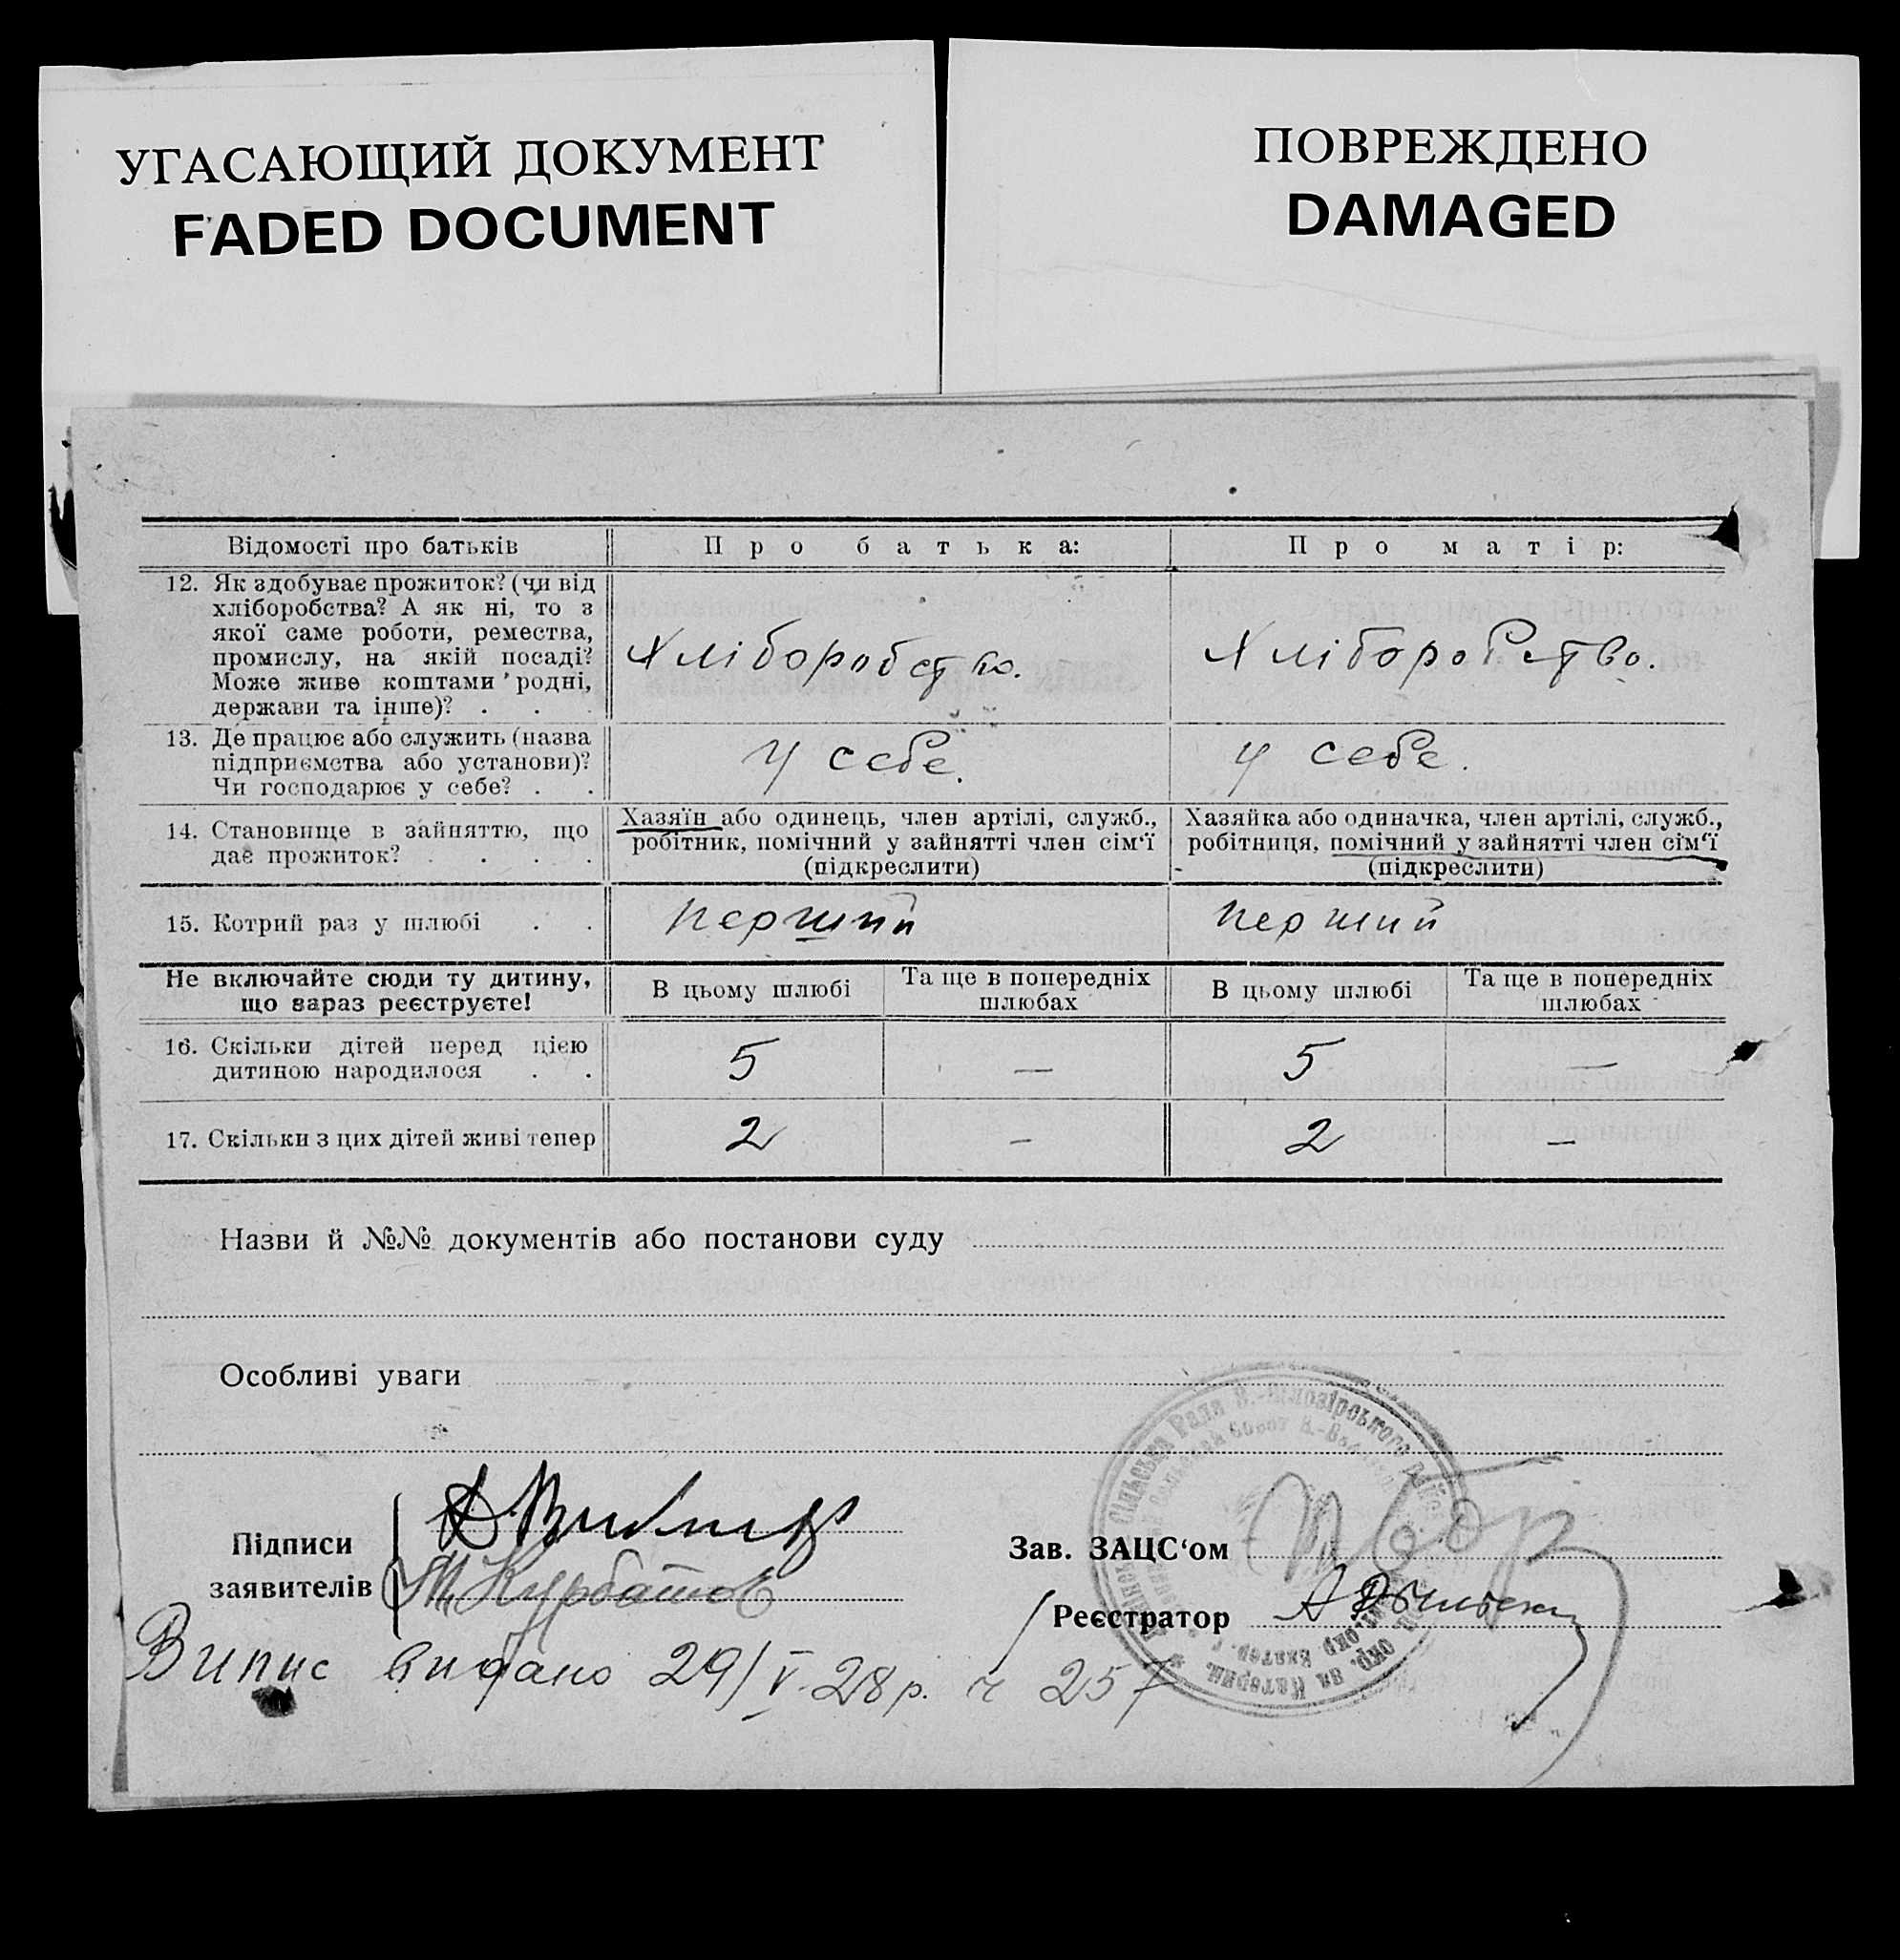 УГАСАЮЩИЙ ДОКУМЕНТ
FADED DOCUMENT
ПОВРЕЖДЕНО
DAMAGED
Відомості про батьків
Про батька:
Про матір:
12. Як здобуває прожиток? (чи від
хліборобства? А як ні, то з
якої саме роботи, ремества,
промислу, на якій посаді?
Може живе коштами родні,
держави та інше)? . . .
Хліборобство.
Хліборобство.
13. Де працює або служить (назва
підприємства або установи)?
Чи господарює у себе? . .
У себе.
у себе.
14. Становище в зайняттю, що
дає прожиток? . . . .
Хазяїн або одинець, член артілі, служб.,
робітник, помічний у зайнятті член сім‘ї
(підкреслити)
Хазяйка або одиначка, член артілі, служб.,
робітниця, помічний у зайнятті член сім‘ї
(підкреслити)
15. Котрий раз у шлюбі . .
перший
перший
Не включайте сюди ту дитину,
що зараз реєструєте!
В цьому шлюбі
Та ще в попередніх
шлюбах
В цьому шлюбі
Та ще в попередніх
шлюбах
16. Скільки дітей перед цією
дитиною народилося . .
5
—
5
—
17. Скільки з цих дітей живі тепер
2
—
2
—
Назви й №№ документів або постанови суду
Особливі уваги
Підписи
заявителів
Курбатов
Зав. ЗАЦС‘ом
Реєстратор
Сільська Рада
окр. на Катерин.
Випис видано 29/V-28р. ч 257